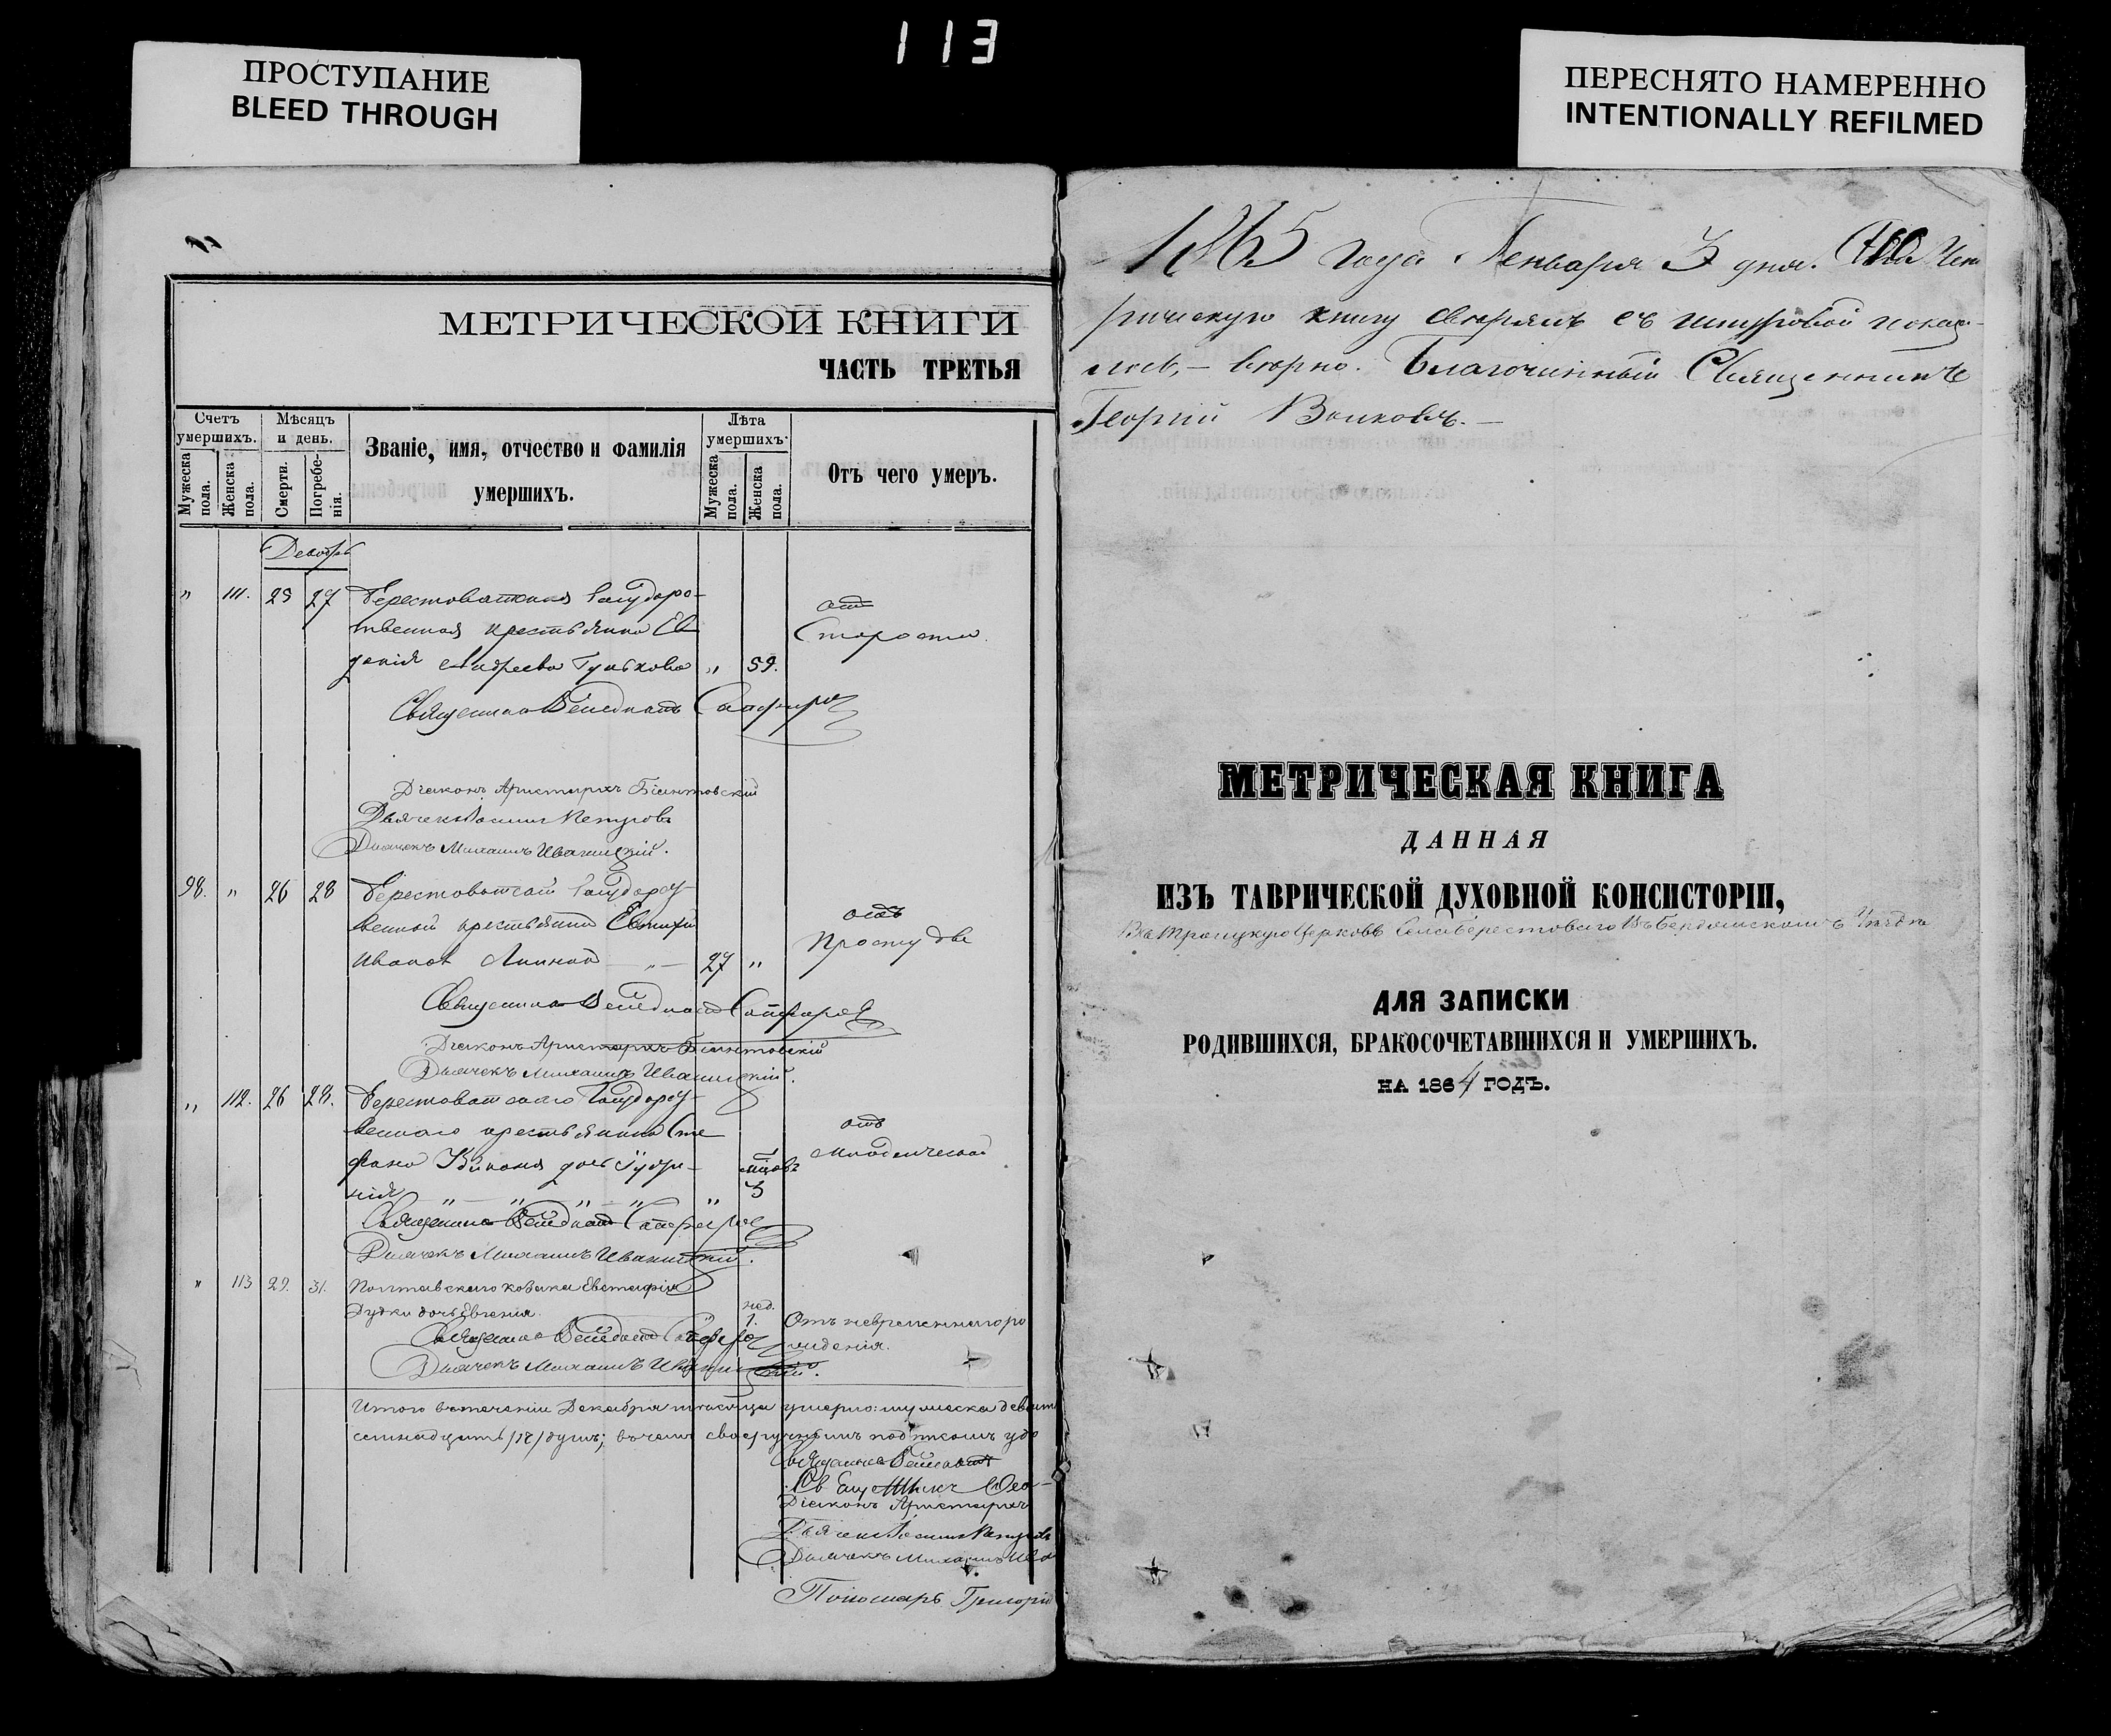 113
ПРОСТУПАНИЕ
BLEED THROUGH
ПЕРЕСНЯТО НАМЕРЕННО
INTENTIONALLY REFILMED
МЕТРИЧЕСКОЙ КНИГИ
ЧАСТЬ ТРЕТЬЯ
Счетъ умершихъ.
Мужеска пола.
Женска пола.
Мѣсяцъ и день.
Смерти.
Погребенія.
Званіе, имя, отчество и фамилія
умершихъ.
Лѣта умершихъ.
Мужеска пола.
Женска пола.
Отъ чего умер.
Декабрь
" 111. 25 27 Берестоватская Государ-
ственная крестьянка Ев
докія Андреева Гулькова " 59.
отъ
Старости
Священникъ Венедиктъ Сапфиров
Діаконъ Аристархъ
Дьячекъ Василій Петровъ
Дьячекъ Михаилъ Иваницкій.
98. " 26 28 Берестоватскій Государст
венный крестьянинъ Евтихій
Иванов 27 "
отъ
Простуды
Священникъ Венедиктъ Сапфиров
Діаконъ Аристархъ
Дьячекъ Михаилъ Иваницкій.
" 112. 26 28. Берестоватскаго Государст
веннаго крестьянина Сте
фана дочь
" мцовъ 3
отъ
Младенческой
Священникъ Венедиктъ Сапфиров
Дьячекъ Михаилъ Иваницкій.
" 113 29. 31. Полтавскаго козака Евстафія
Дудки дочь Евгенія " нед. 1.
Отъ невременнаго ро
жденія.
Священникъ Венедиктъ Сапфиров
Дьячекъ Михаилъ Иваницкій.
Итого въ теченіи Декабря мѣсяца умерло: мужеска девят
семнадцать /17/ душъ; въ чемъ своеручнымъ подписомъ удо
Священникъ Венедиктъ
Священникъ
Діаконъ Аристархъ
Дьячекъ Василій Петровъ
Дьячекъ Михаилъ Ива
Пономарь Григорій
1865 года Генваря 3 дня. Мет
рическую книгу свѣрялъ съ шнуровой оказа-
лось,– вѣрно. Благочинный Священникъ
Георгій Волковъ.–
МЕТРИЧЕСКАЯ КНИГА
ДАННАЯ
ИЗЪ ТАВРИЧЕСКОЙ ДУХОВНОЙ КОНСИСТОРІИ,
Въ Троицкую Церковь Села Берестоваго въ Бердянскомъ Уѣздѣ
ДЛЯ ЗАПИСКИ
РОДИВШИХСЯ, БРАКОСОЧЕТАВШИХСЯ И УМЕРШИХЪ.
НА 1864 ГОДЪ.